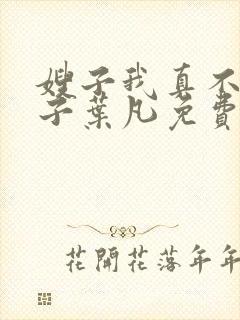 嫂子我真不
子葉凡免費
花開花落年年